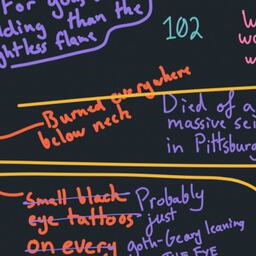 For you,
lding than the
ghtless flame
102
Burned everywhere
below neck
Died of a
massive sei
in Pittsburg
Small black
eye tattoos
on every
Probably
just
goth-Geary leaning
THE EYE